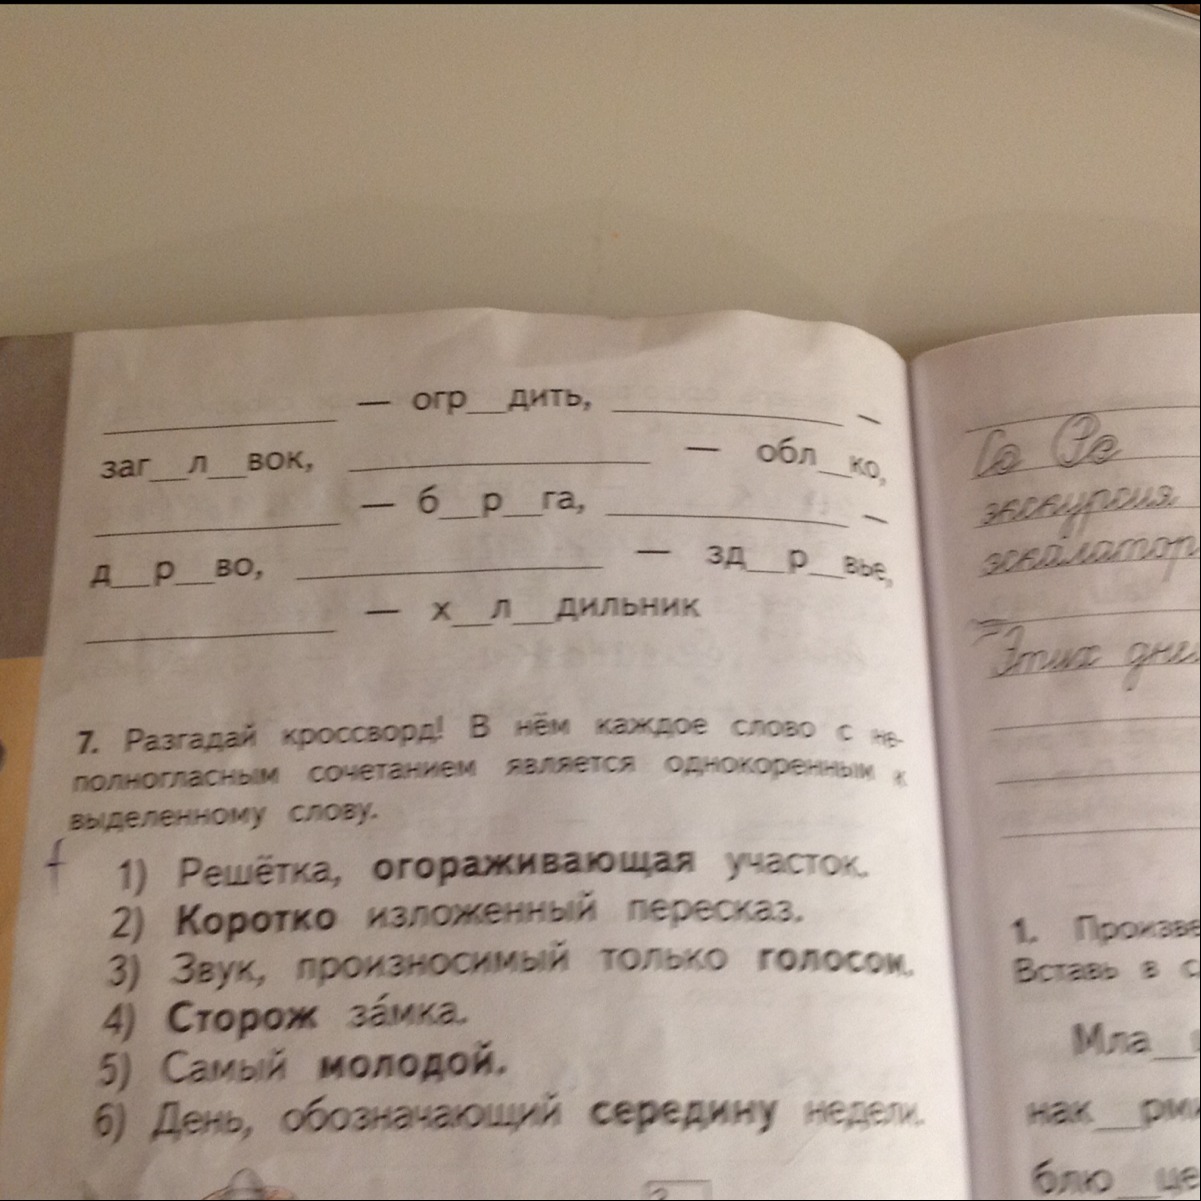 — огр__дить, —
заг__л__вок, — обл__ко,
— б__р__га, —
д__р__во, — зд__р__вье,
— х__л__дильник
7. Разгадай кроссворд! В нём каждое слово с не-
полногласным сочетанием является однокоренным к
выделенному слову.
1) Решётка, огораживающая участок.
2) Коротко изложенный пересказ.
3) Звук, произносимый только голосом.
4) Сторож за́мка.
5) Самый молодой.
6) День, обозначающий середину недели.
экскурсия
эскалатор
Этих дне
1. Произве
Вставь в с
Мла__
нак__рм
блю__це